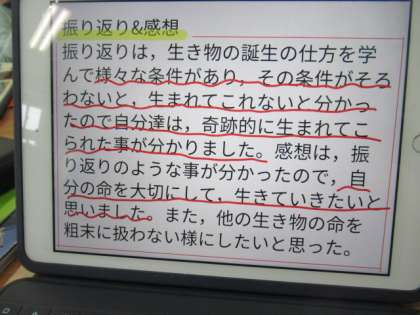 振り返り&感想
振り返りは，生き物の誕生の仕方を学
んで様々な条件があり，その条件がそろ
わないと，生まれてこれないと分かっ
たので自分達は，奇跡的に生まれてこ
られた事が分かりました。感想は，振
り返りのような事が分かったので，自
分の命を大切にして，生きていきたいと
思いました。また，他の生き物の命を
粗末に扱わない様にしたいと思った。